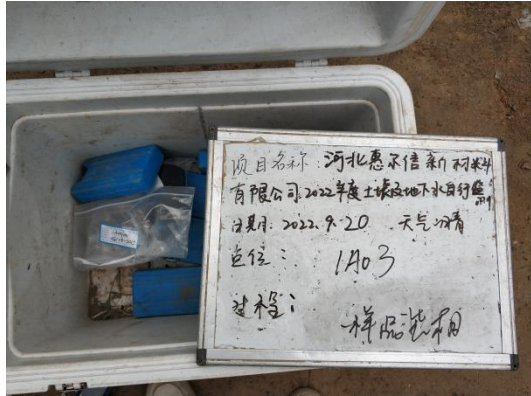 项目名称：河北惠尔信新材料
有限公司2022年度土壤及地下水自行监测
日期：2022.9.20 天气：晴
点位： 1A03
过程：
样品装箱